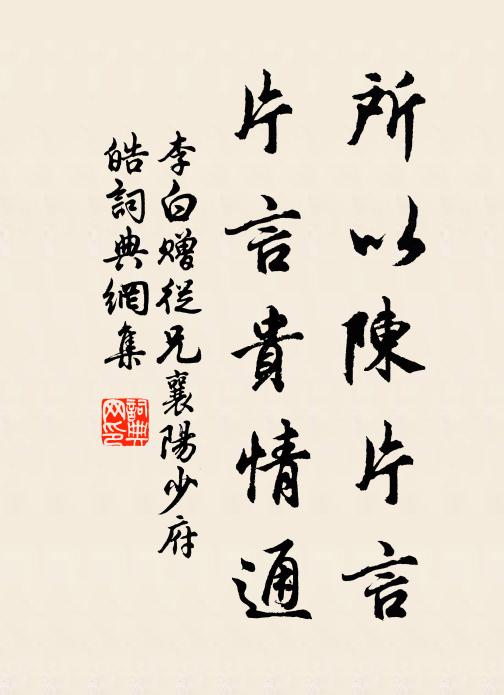 所以陳片言
片言貴情通
李白贈從兄襄陽少府
皓詞典網集
詞典
网印